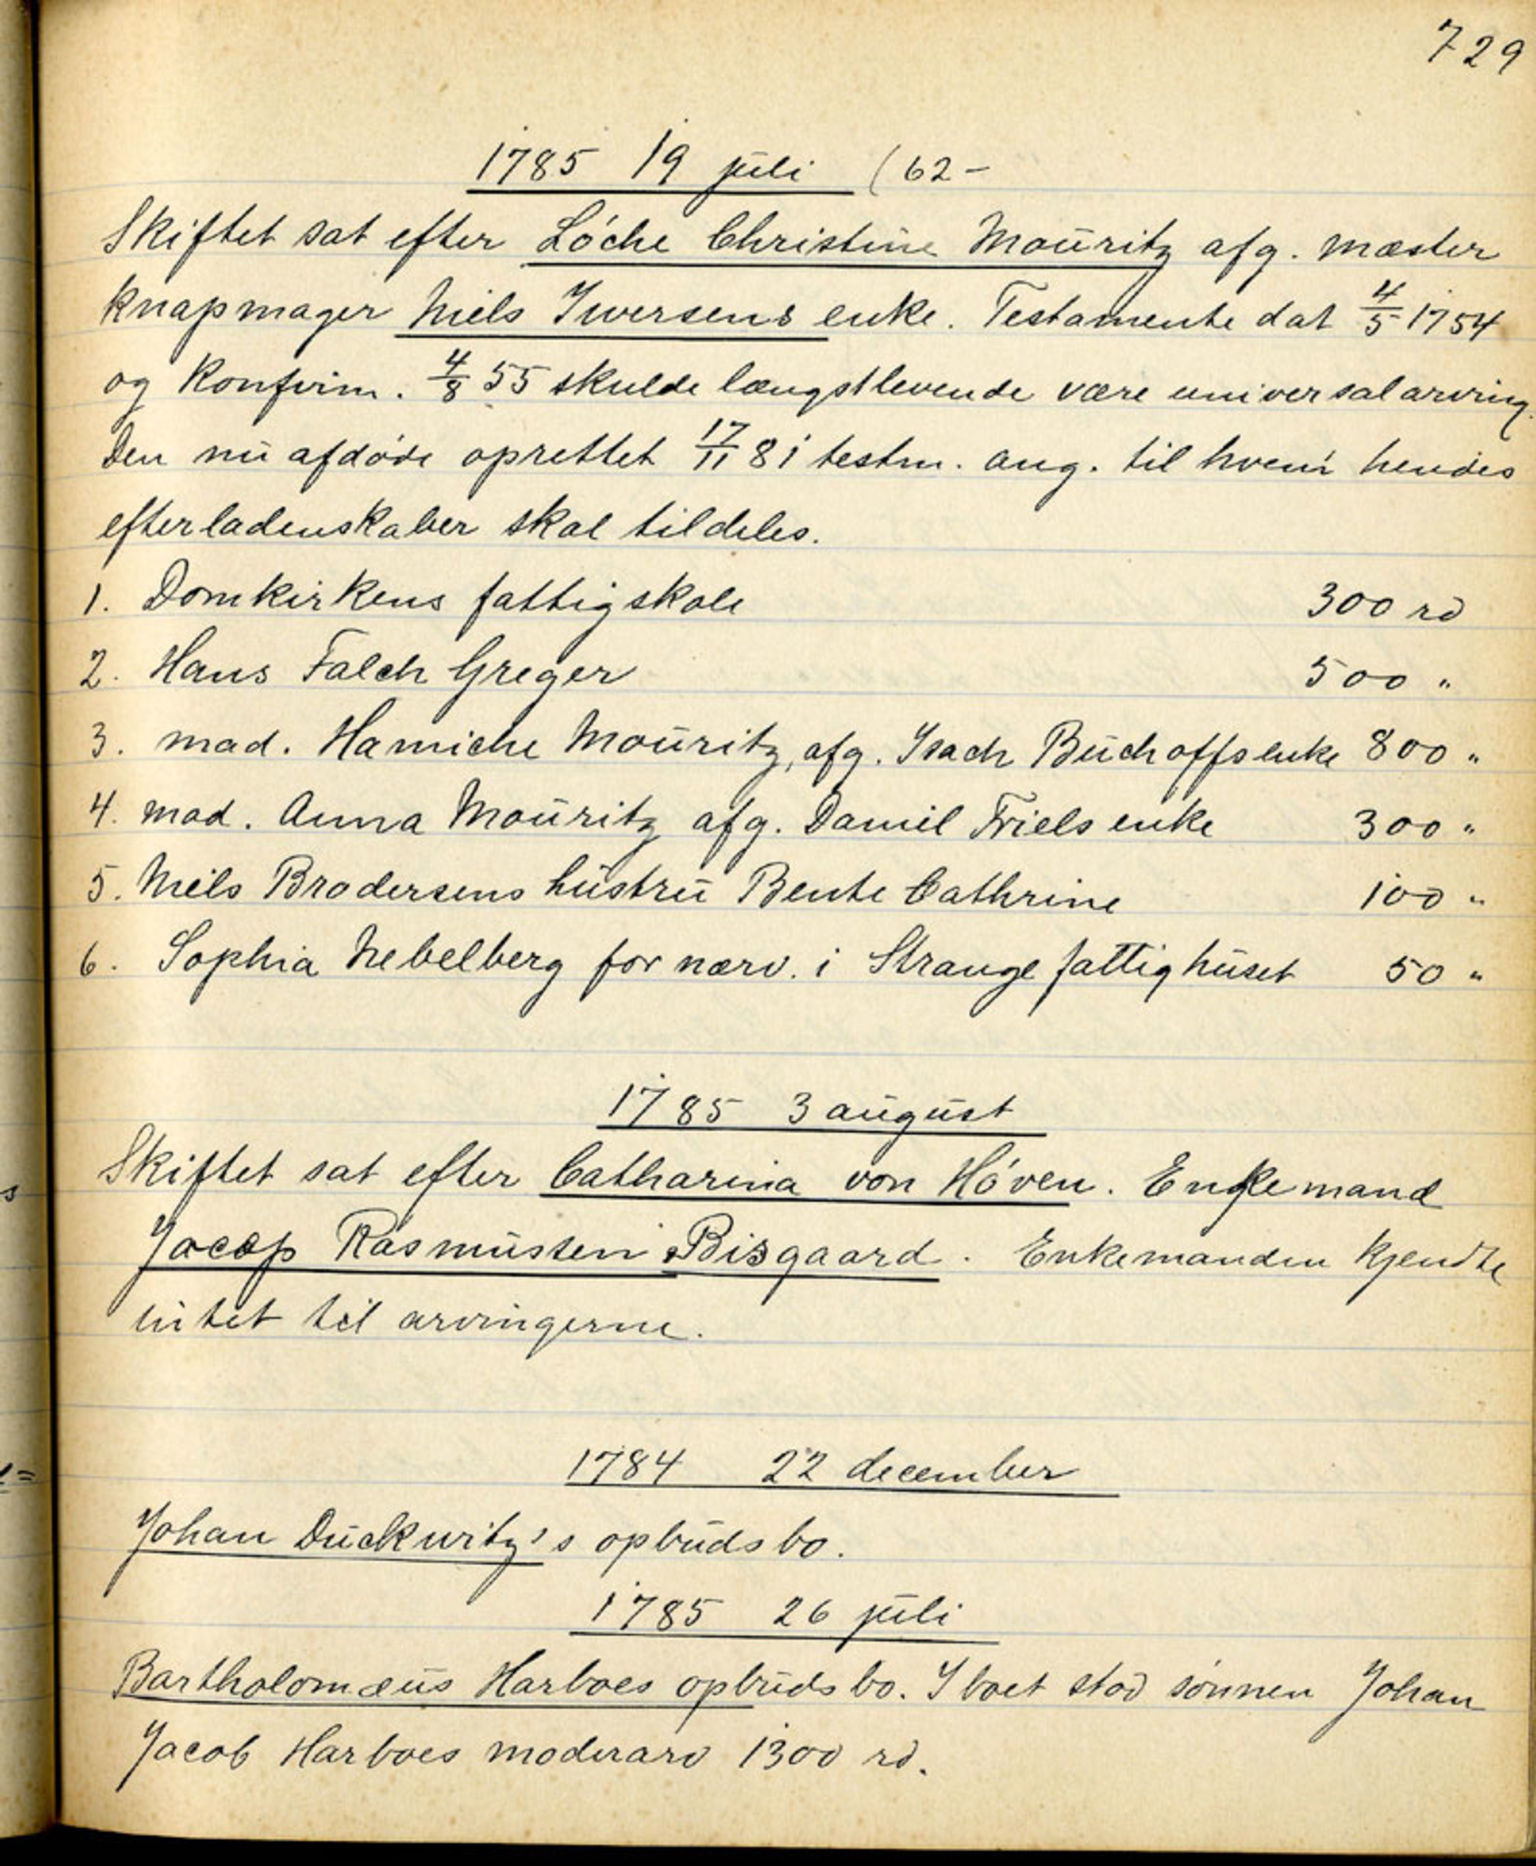 729
1785 19 juli (62-
Skiftet sat efter Löche Christine Mouritz afg. mæster
knapmager Niels Iwersens enke. Testamente dat 4/5 1754
og konfirm. 4/8 55 skulde længstlevende være universalarving.
Den nu afdøde oprettet 17/11 81 testm. ang. til hvem hendes
efterladenskaber skal tildeles.
1. Domkirkens fattigskole 300 rd
2. Hans Falch Greger 500 "
3. mad. Hamiche Mouritz, afg. Isach Buchoffs enke 800 "
4. mad. Anna Mouritz afg. Daniel Friels enke 300 "
5. Niels Brodersens hustru Bente Cathrine 100 "
6. Sophia Nebelberg for nærv. i Strange fattighuset 50 "
1785 3 august
Skiftet sat efter Catharina von Höven. Enkemand
Jacop Rasmussen Bisgaard. Enkemanden kjendte
intet til arvingerne.
1784 22 december
Johan Duckwitz's opbuds bo.
1785 26 juli
Bartholomæus Harboes opbuds bo. I boet stod sönnen Johan
Jacob Harboes moderarv 1300 rd.